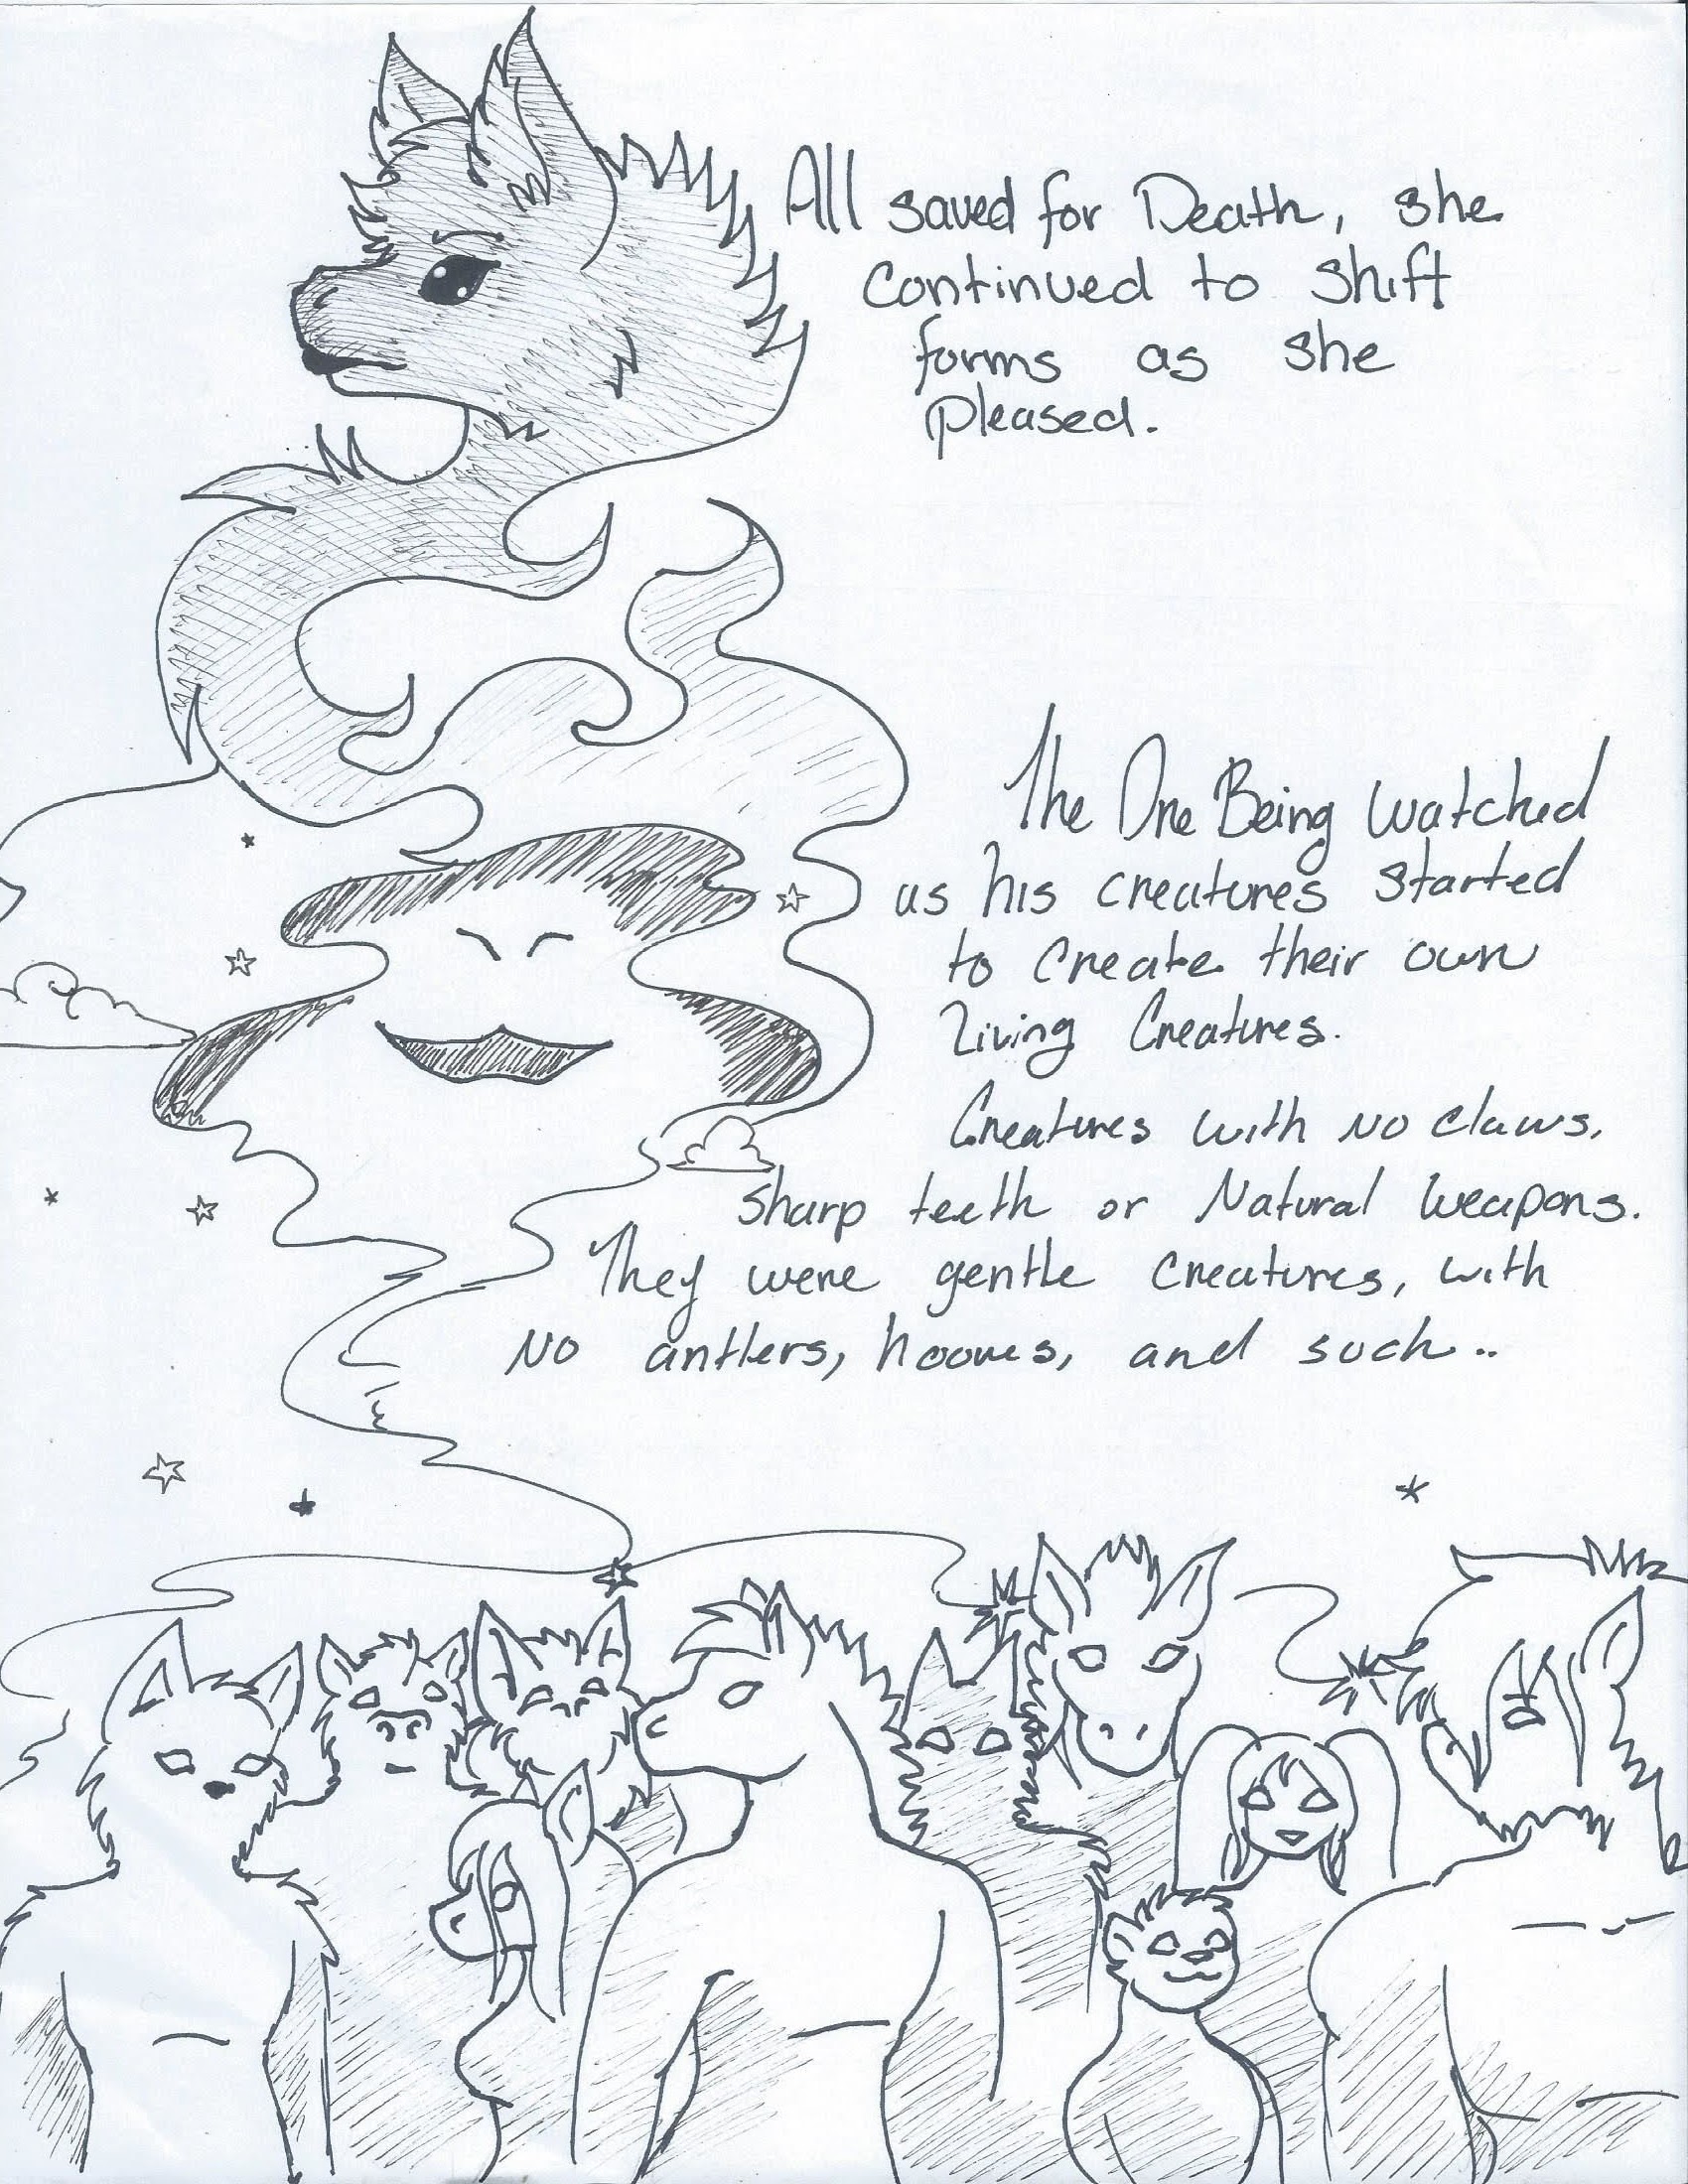 All saved for Death, she
continued to shift
forms as she
pleased.
The One Being watched
as his creatures started
to create their own
living creatures.
Creatures with no claws,
sharp teeth or Natural weapons.
They were gentle creatures, with
no antlers, hooves, and such..